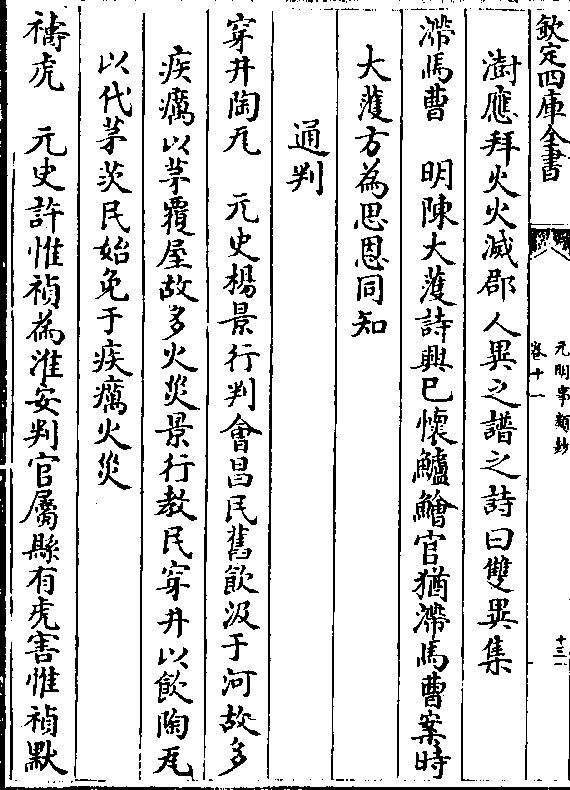 欽定四庫全書
元明事類鈔
卷十一
十三
澍應拜火火滅郡人異之譜之詩曰雙異集
滯馬曹　明陳大濩詩興已懷鱸鱠官猶滯馬曹案時
大濩方為思恩同知
通判
穿井陶瓦　元史楊景行判會昌民舊飲汲于河故多
疾癘以茅覆屋故多火災景行教民穿井以飲陶瓦
以代茅茨民始免于疾癘火災
禱虎　元史許惟禎為淮安判官屬縣有虎害惟禎默